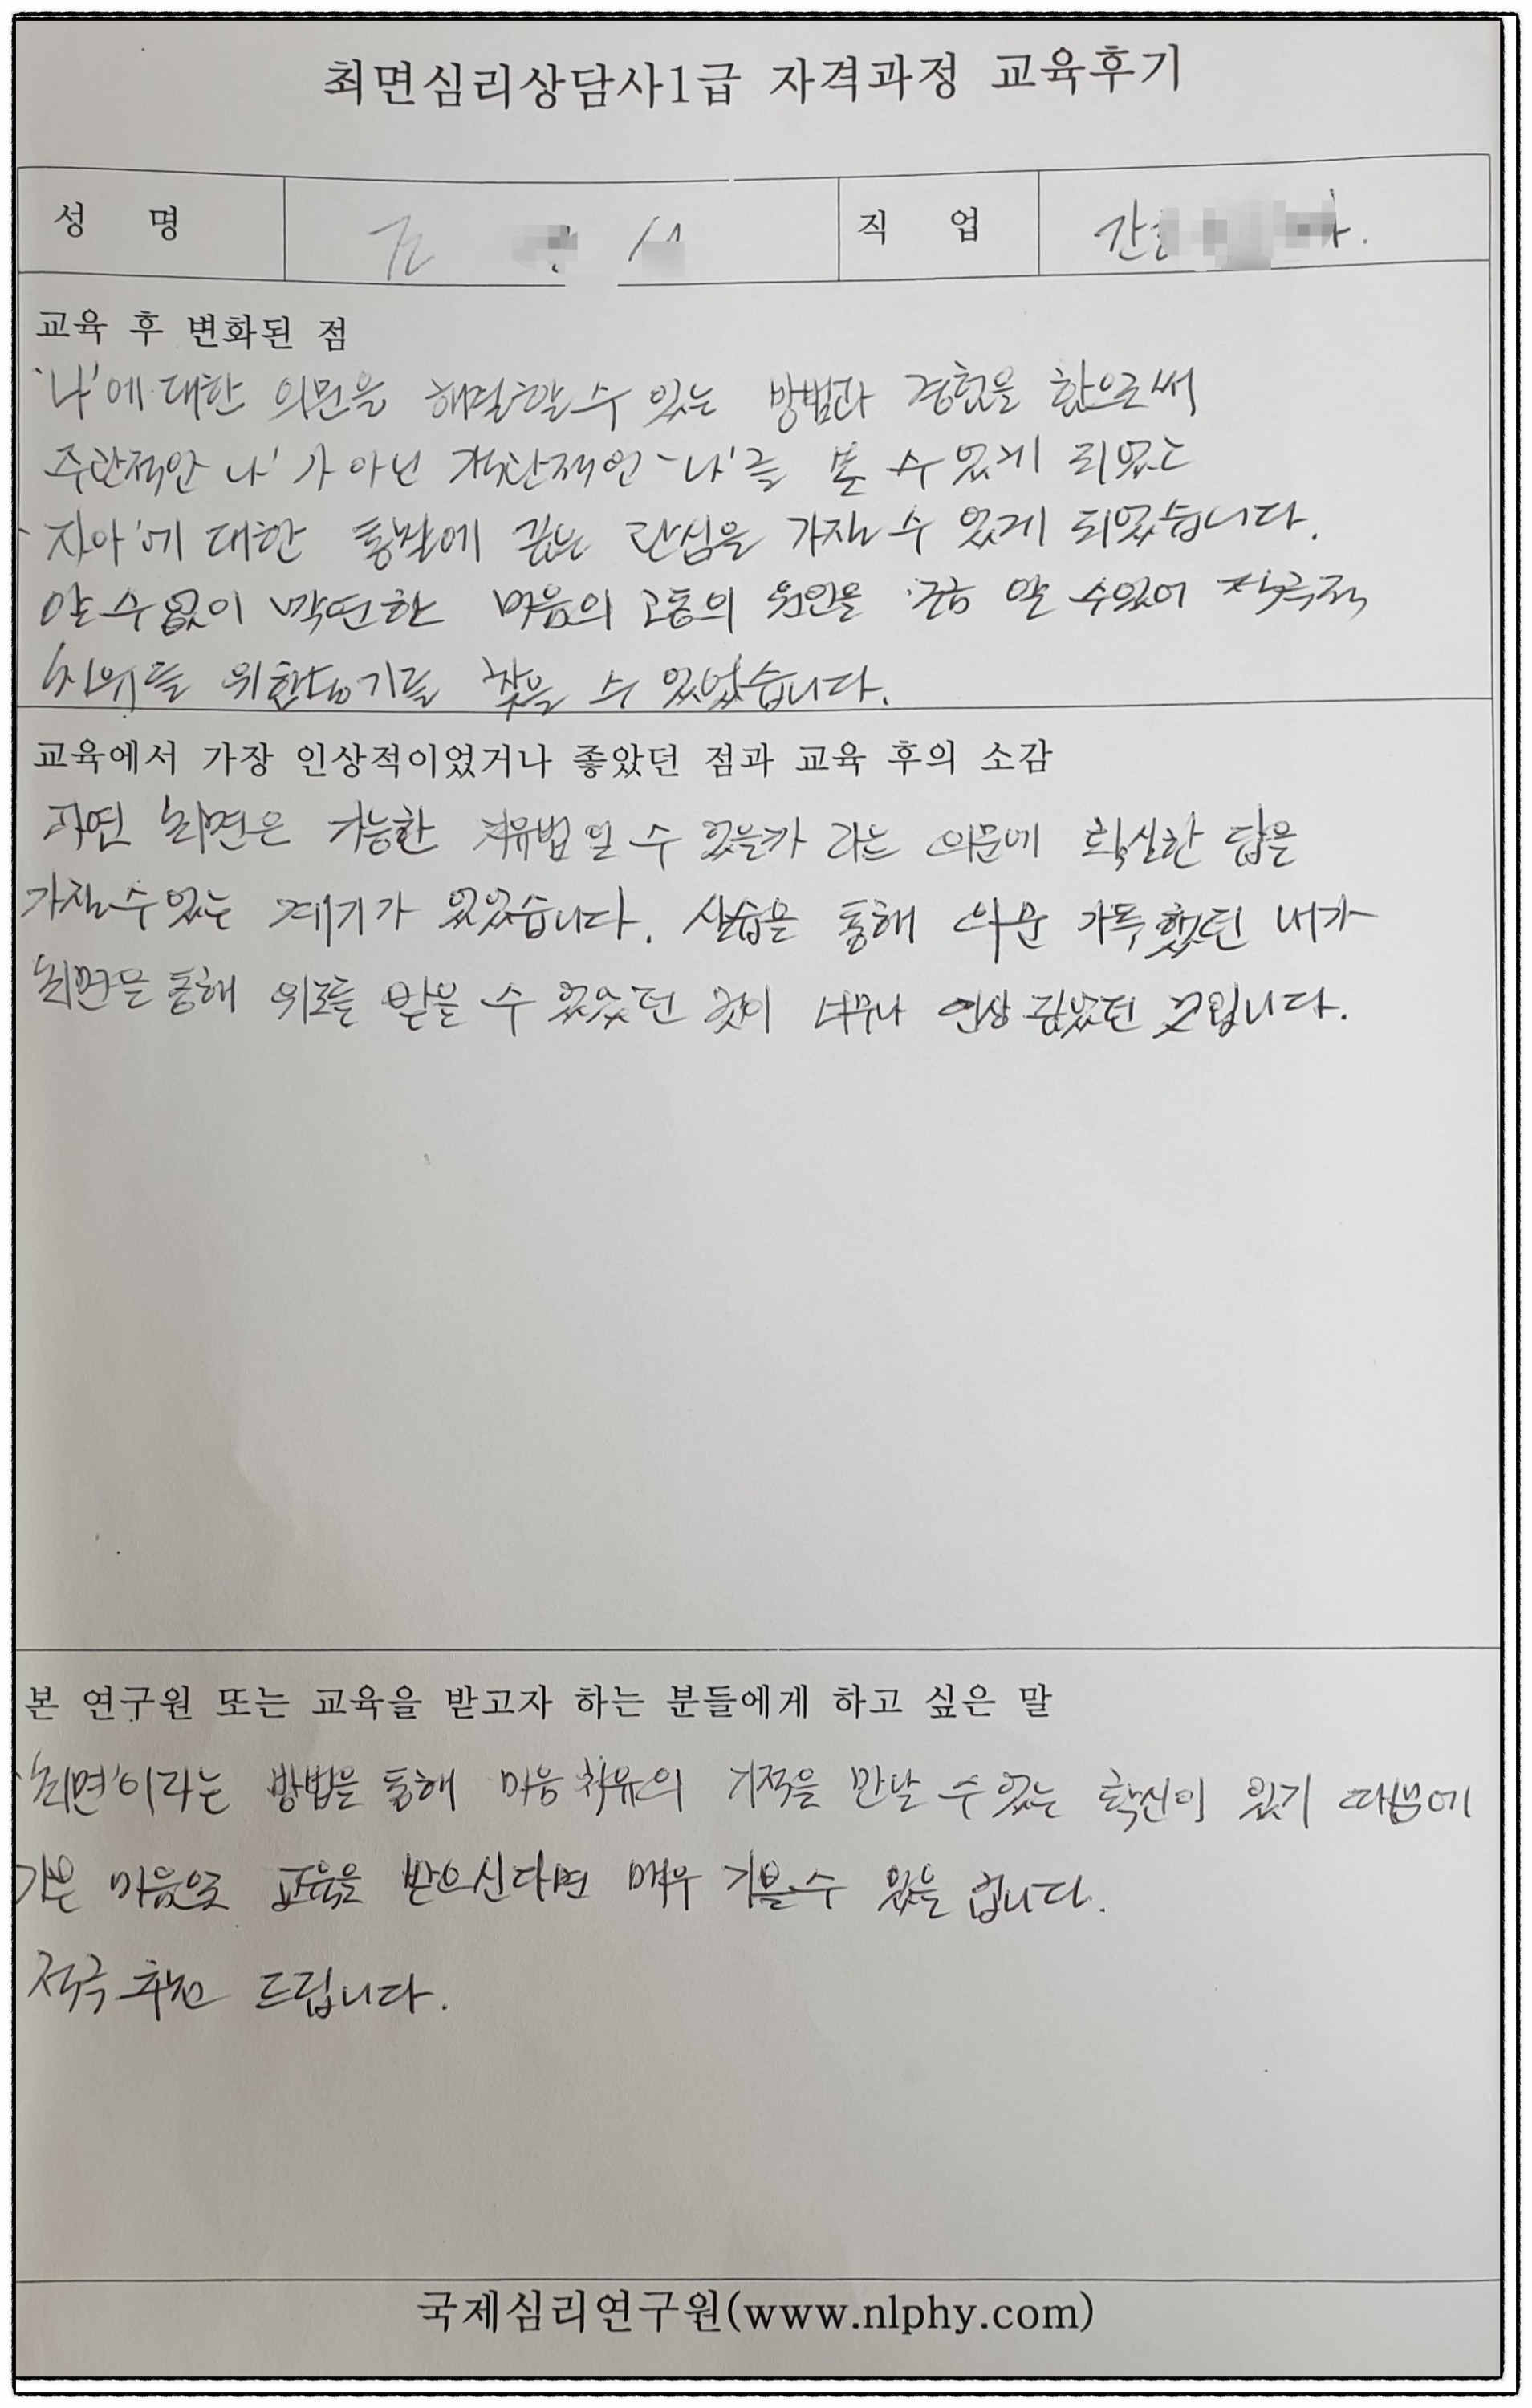 최면심리상담사1급 자격과정 교육후기
성 명 직 업
교육 후 변화된 점
'나'에 대한 의문을 해결할 수 있는 방법과 경험을 함으로써
주관적인 나'가 아닌 객관적인 '나'를 볼 수 있게 되었고
'자아'에 대한 통찰에 깊은 관심을 가질 수 있게 되었습니다.
알 수 없이 막연한 마음의 고통의 원인을 알 수 있어 적극적
치유를 위한 동기를 찾을 수 있었습니다.
교육에서 가장 인상적이었거나 좋았던 점과 교육 후의 소감
과연 최면은 가능한 치유법일 수 있을까 라는 의문에 확실한 답을
가질 수 있는 계기가 있었습니다. 실습을 통해 의문 가득했던 내가
최면을 통해 위로를 받을 수 있었던 것이 너무나 인상 깊었던 것입니다.
본 연구원 또는 교육을 받고자 하는 분들에게 하고 싶은 말
'최면'이라는 방법을 통해 마음 치유의 기적을 만날 수 있는 확신이 있기 때문에
마음으로 교육을 받으신다면 매우 기쁠 수 있을 겁니다.
적극 추천 드립니다.
국제심리연구원(www.nlphy.com)